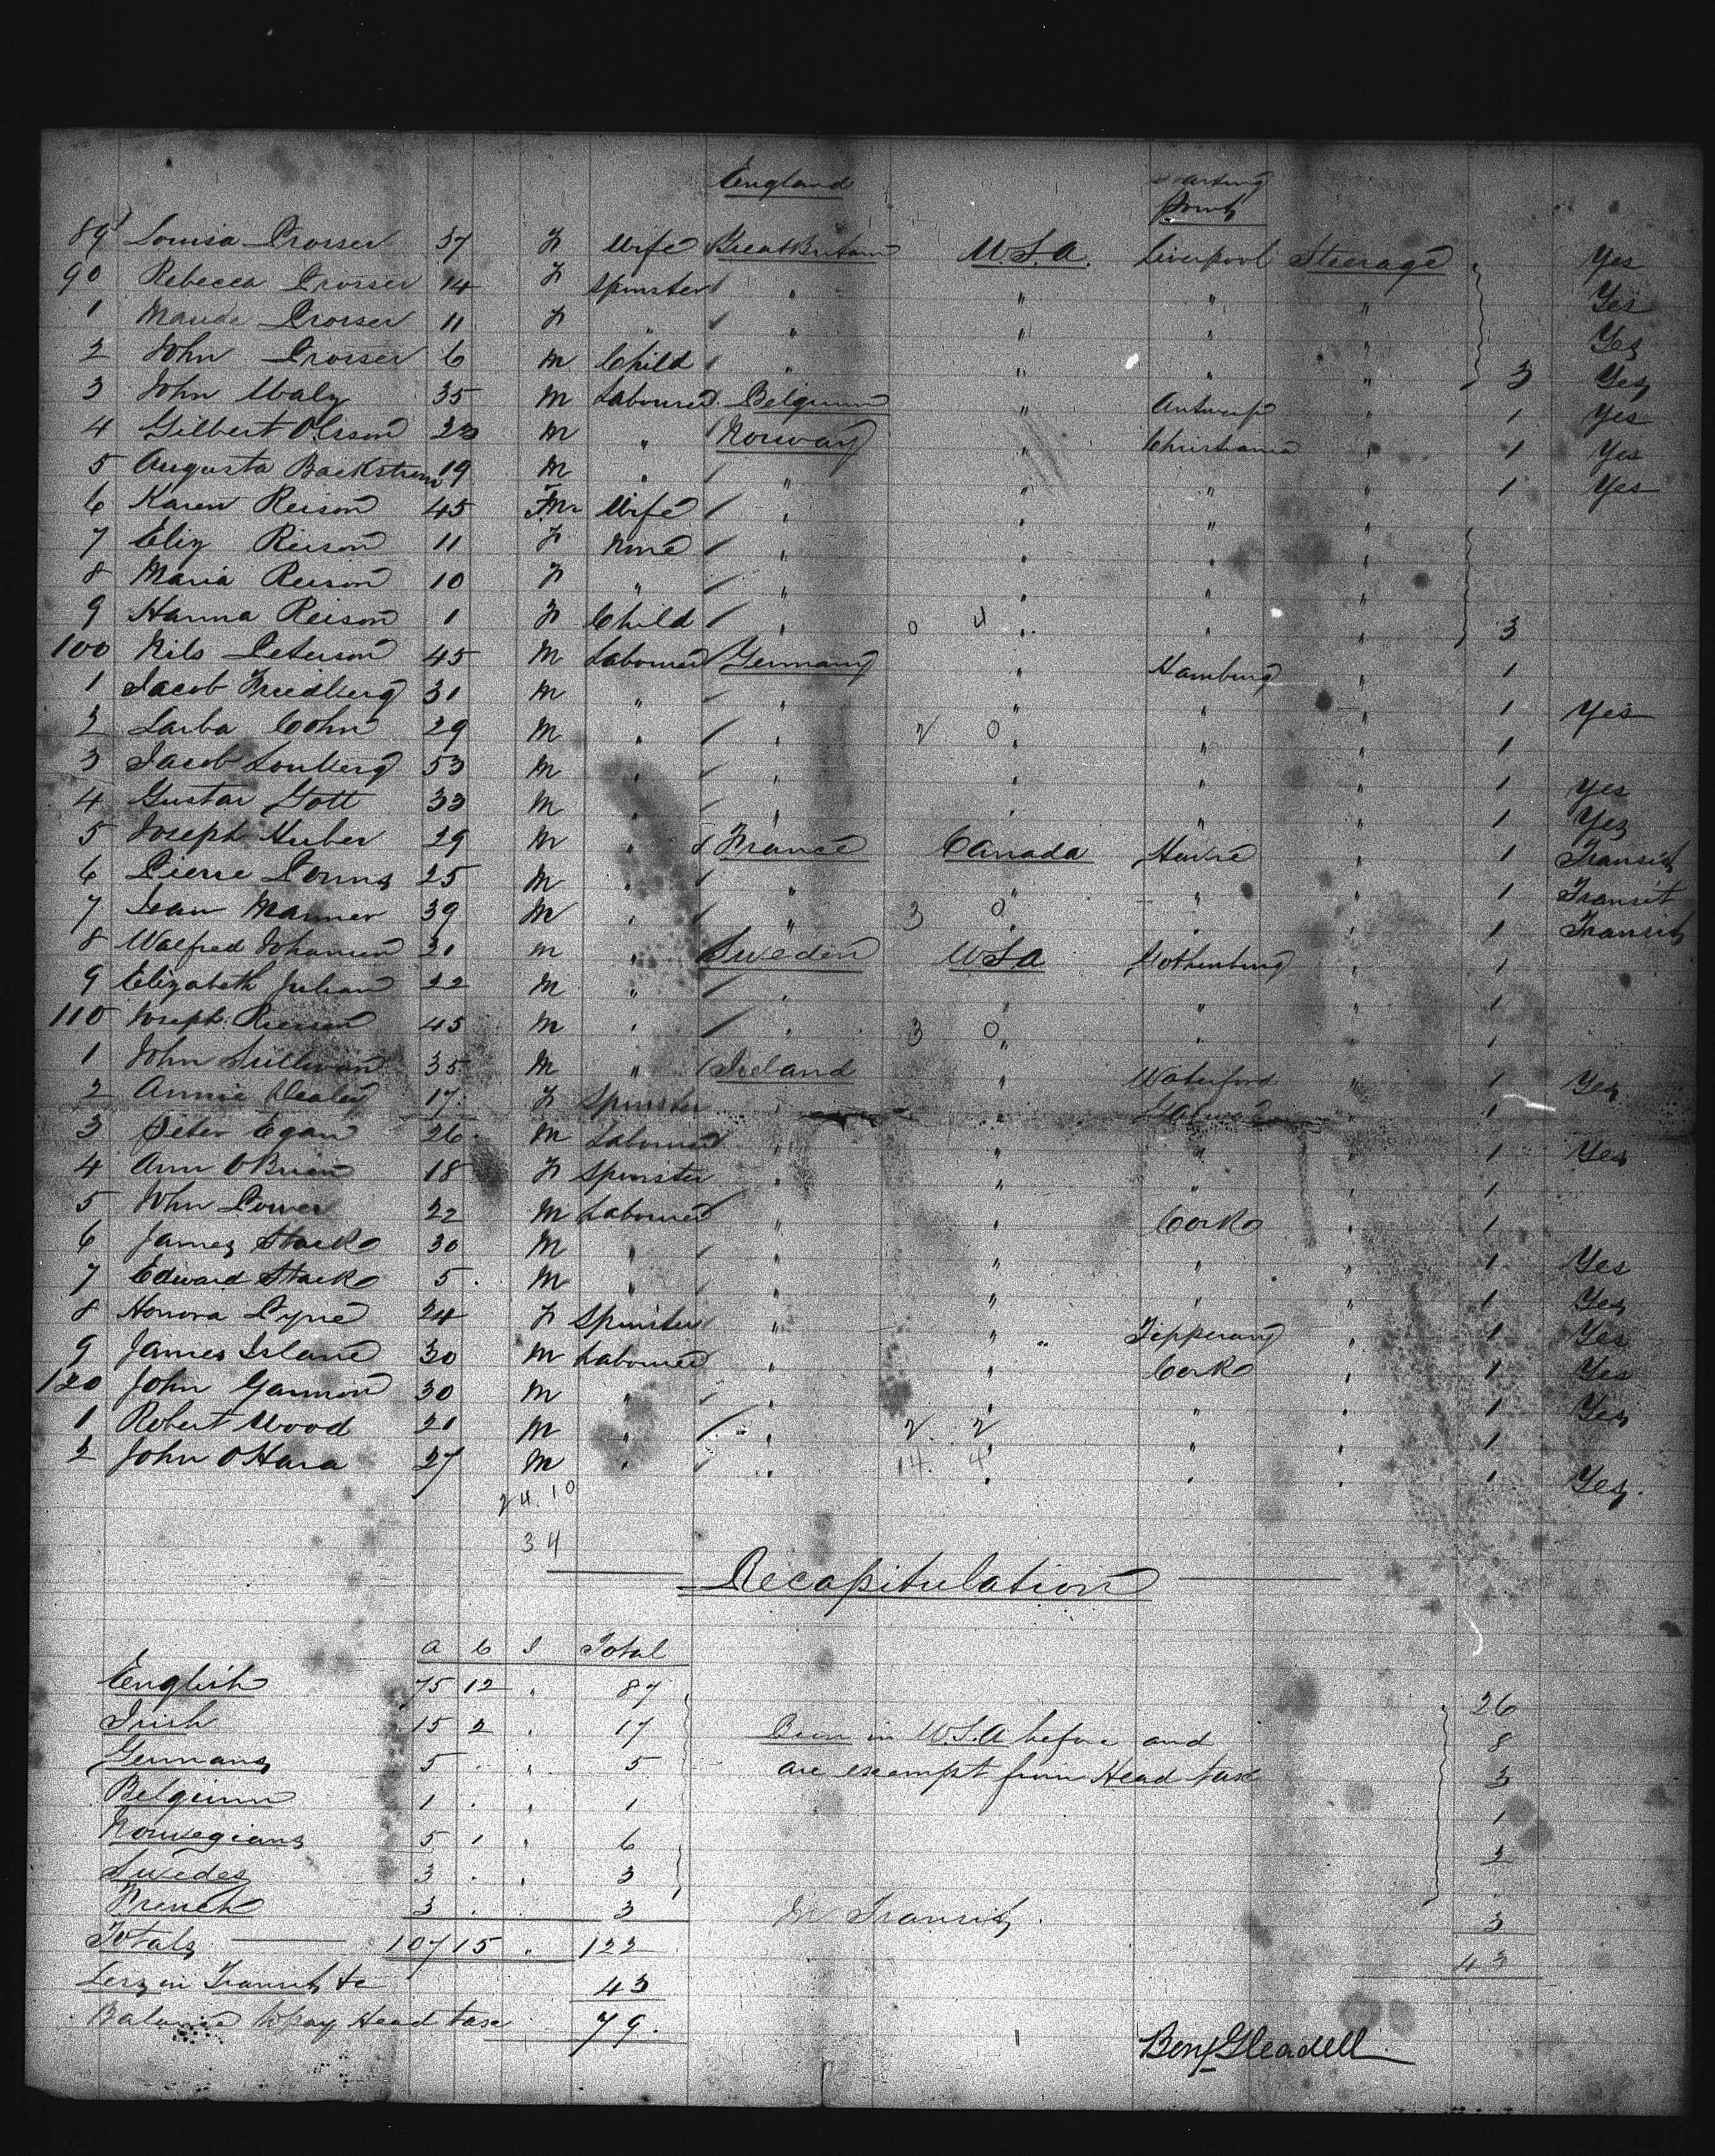 England
Starting Point
89 Louisa Prosser 37 F Wife Great Britain U.S.A. Liverpool Steerage Yes
90 Rebecca Prosser 14 F Spinster " " " " Yes
1 Maude Prosser 11 F " " " " " Yes
2 John Prosser 6 M Child " " " " 3 Yes
3 John Waly 35 M Labourer Belgium " Antwerp " 1 Yes
4 Gilbert Olsson 23 M " Norway " Christiania " 1 Yes
5 Augusta Backstrom 19 M " " " " " 1 Yes
6 Karen Reison 45 F Wife " " " "
7 Eliz Reison 11 F None " " " "
8 Maria Reison 10 F " " " " "
9 Hanna Reison 1 F Child " 0 4 " " " 3
100 Nils Peterson 45 M Labourer Germany " Hamburg " 1
1 Jacob Friedberg 31 M " " " " " 1 Yes
2 Sarba Cohn 29 M " " 2. 0 " " " 1
3 Jacob Lonberg 53 M " " " " " 1 Yes
4 Gustav Gott 33 M " " " " " 1 Yes
5 Joseph Huber 29 M " France Canada Havre " 1 Transit
6 Pierre 25 M " " " " " 1 Transit
7 Jean 39 M " " 3 0 " " " 1 Transit
8 Walfred Johansen 21 M " Sweden USA Gothenburg " 1
9 Elizabeth Julian 22 M " " " " " 1
110 Joseph 45 M " " 3 0 " " " 1
1 John Sullivan 35 M " Ireland " Waterford " 1 Yes
2 Annie 17 F Spinster " " Galway " 1
3 Peter Egan 26 M Labourer " " " " 1 Yes
4 Ann O'Brien 18 F Spinster " " " " 1
5 John Power 22 M Labourer " " Cork " 1
6 James Stack 30 M " " " " " 1 Yes
7 Edward Stack 5 M " " " " " 1 Yes
8 Honora Pyne 24 F Spinster " " " Tipperary " 1 Yes
9 James Island 30 M Labourer " " Cork " 1 Yes
120 John Gannon 30 M " " " " " 1 Yes
1 Robert Wood 21 M " " 2. 2 " " " 1
2 John O'Hara 27 M " " 14. 4 " " " 1 Yes.
24.10
34
Recapitulation
a c I Total
English 75 12 " 87 26
Irish 15 2 " 17 Been in U.S.A before and 8
Germans 5 . . 5 are exempt from Head tax 3
Belgium 1 . " 1 1
Norwegians 5 1 " 6 2
Swedes 3 . " 3
French 3 . . 3 In Transit. 3
Totals 107 15 " 122 43
Less in Transit &c 43
Balance to pay Head tax 79.
Benj Gleadell